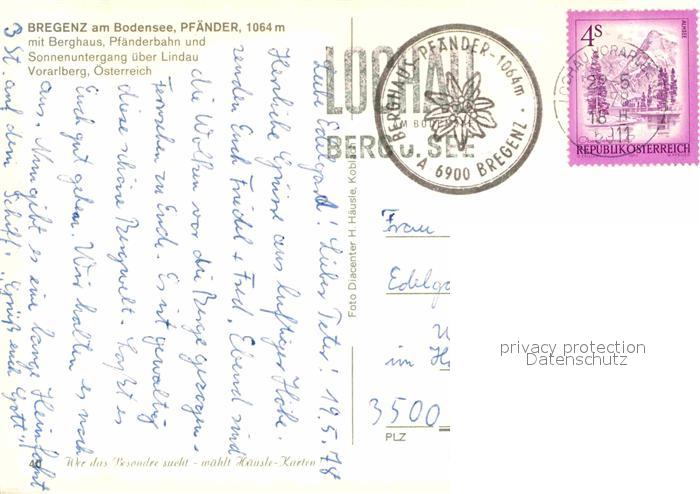 BREGENZ am Bodensee, PFÄNDER, 1064 m
mit Berghaus, Pfänderbahn und
Sonnenuntergang über Lindau
Vorarlberg, Österreich
LOCHAU
AM BODENSEE
BERG u. SEE
BERGHAUS PFÄNDER-1064m
A 6900 BREGENZ
4 S
ALMSEE
REPUBLIK ÖSTERREICH
LOCHAU, VORARLBERG
29.5
18
6911
Liebe Edelgard! Lieber Peter! 19.5.78
Herzliche Grüsse aus luftiger Höhe.
senden Euch Friedel + Fred. Ebend sind
die Wolken vor die Berge gezogen.
Fernsehen zu Ende. Es ist gewaltig
diese schöne Bergwelt. Laßt es
Euch gut gehen. Wir halten es noch
aus. Nun gibt es eine lange Heimfahrt
3 St. auf dem Schiff. "Grüß euch Gott"
Foto Diacenter H. Häusle, Koblach
Frau
Edelga
im
3500
PLZ
40
Wer das Besondre sucht - wählt Häusle-Karten!
privacy protection
Datenschutz